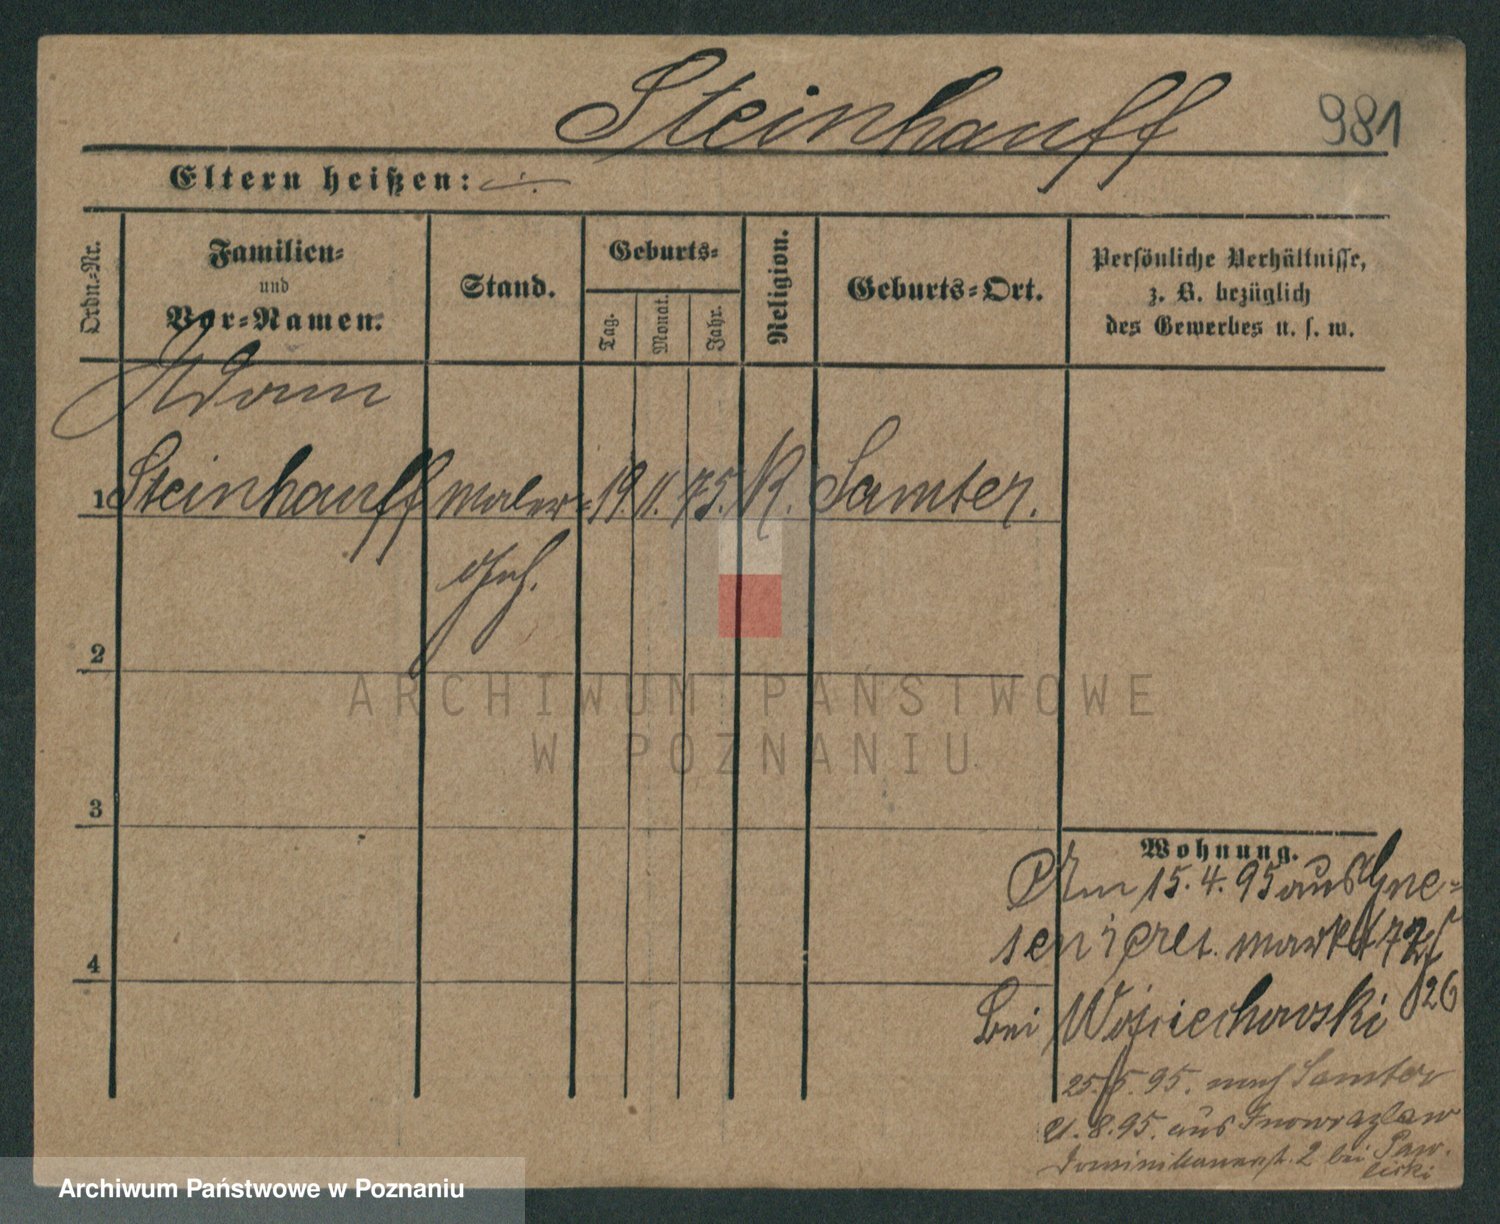 Steinhauff
981
Eltern heißen: -:-
Ordn.-Nr.
Familien-
und
Vor-Namen.
Stand.
Geburts-
Tag.
Monat.
Jahr.
Religion.
Geburts-Ort.
Persönliche Verhältnisse,
z. B. bezüglich
des Gewerbes u. s. w.
Adam
1 Steinhauff Maler- 19. 11. 75. K. Samter.
Geh.
2
3
4
ARCHIWUM PAŃSTWOWE
W POZNANIU
Wohnung.
Am 15.4.95 aus Gne-
sen markt 72/
26
bei Wojciechowski
25.5.95. nach Samter
8.95. aus Inowrazlaw
Dominikanerstr. 2 bei Paw-
licki
Archiwum Państwowe w Poznaniu